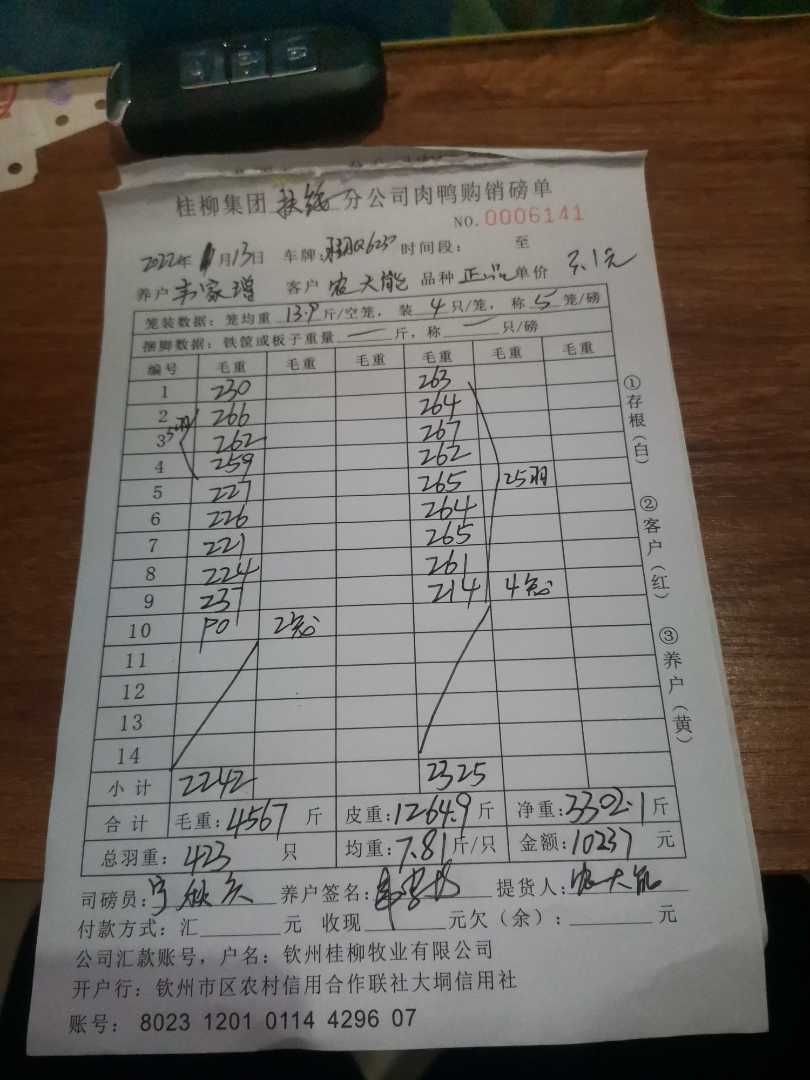 桂柳集团 扶绥 分公司肉鸭购销磅单
NO.0006141
2022年 11月13日 车牌: Q6230 时间段: 至
养户 韦家增 客户 农天能 品种 正品 单价 3.1元
笼装数据: 笼均重 13.9 斤/空笼, 装 4 只/笼, 称 5 笼/磅
捆脚数据: 铁筐或板子重量 — 斤, 称 — 只/磅
编号 毛重 毛重 毛重 毛重 毛重 毛重
1 230 263
2 266 264
3 5羽 262 267
4 259 262
5 227 265 25羽
6 226 264
7 221 265
8 224 261
9 237 214 4笼
10 90 2笼
11
12
13
14
小计 2242 2325
合计 毛重: 4567 斤 皮重: 1264.9 斤 净重: 3302.1 斤
总羽重: 423 只 均重: 7.81 斤/只 金额: 10237 元
司磅员: 养户签名: 提货人: 农天能
付款方式: 汇 元 收现 元欠(余): 元
公司汇款账号, 户名: 钦州桂柳牧业有限公司
开户行: 钦州市区农村信用合作联社大垌信用社
账号: 8023 1201 0114 4296 07
①存根(白)
②客户(红)
③养户(黄)